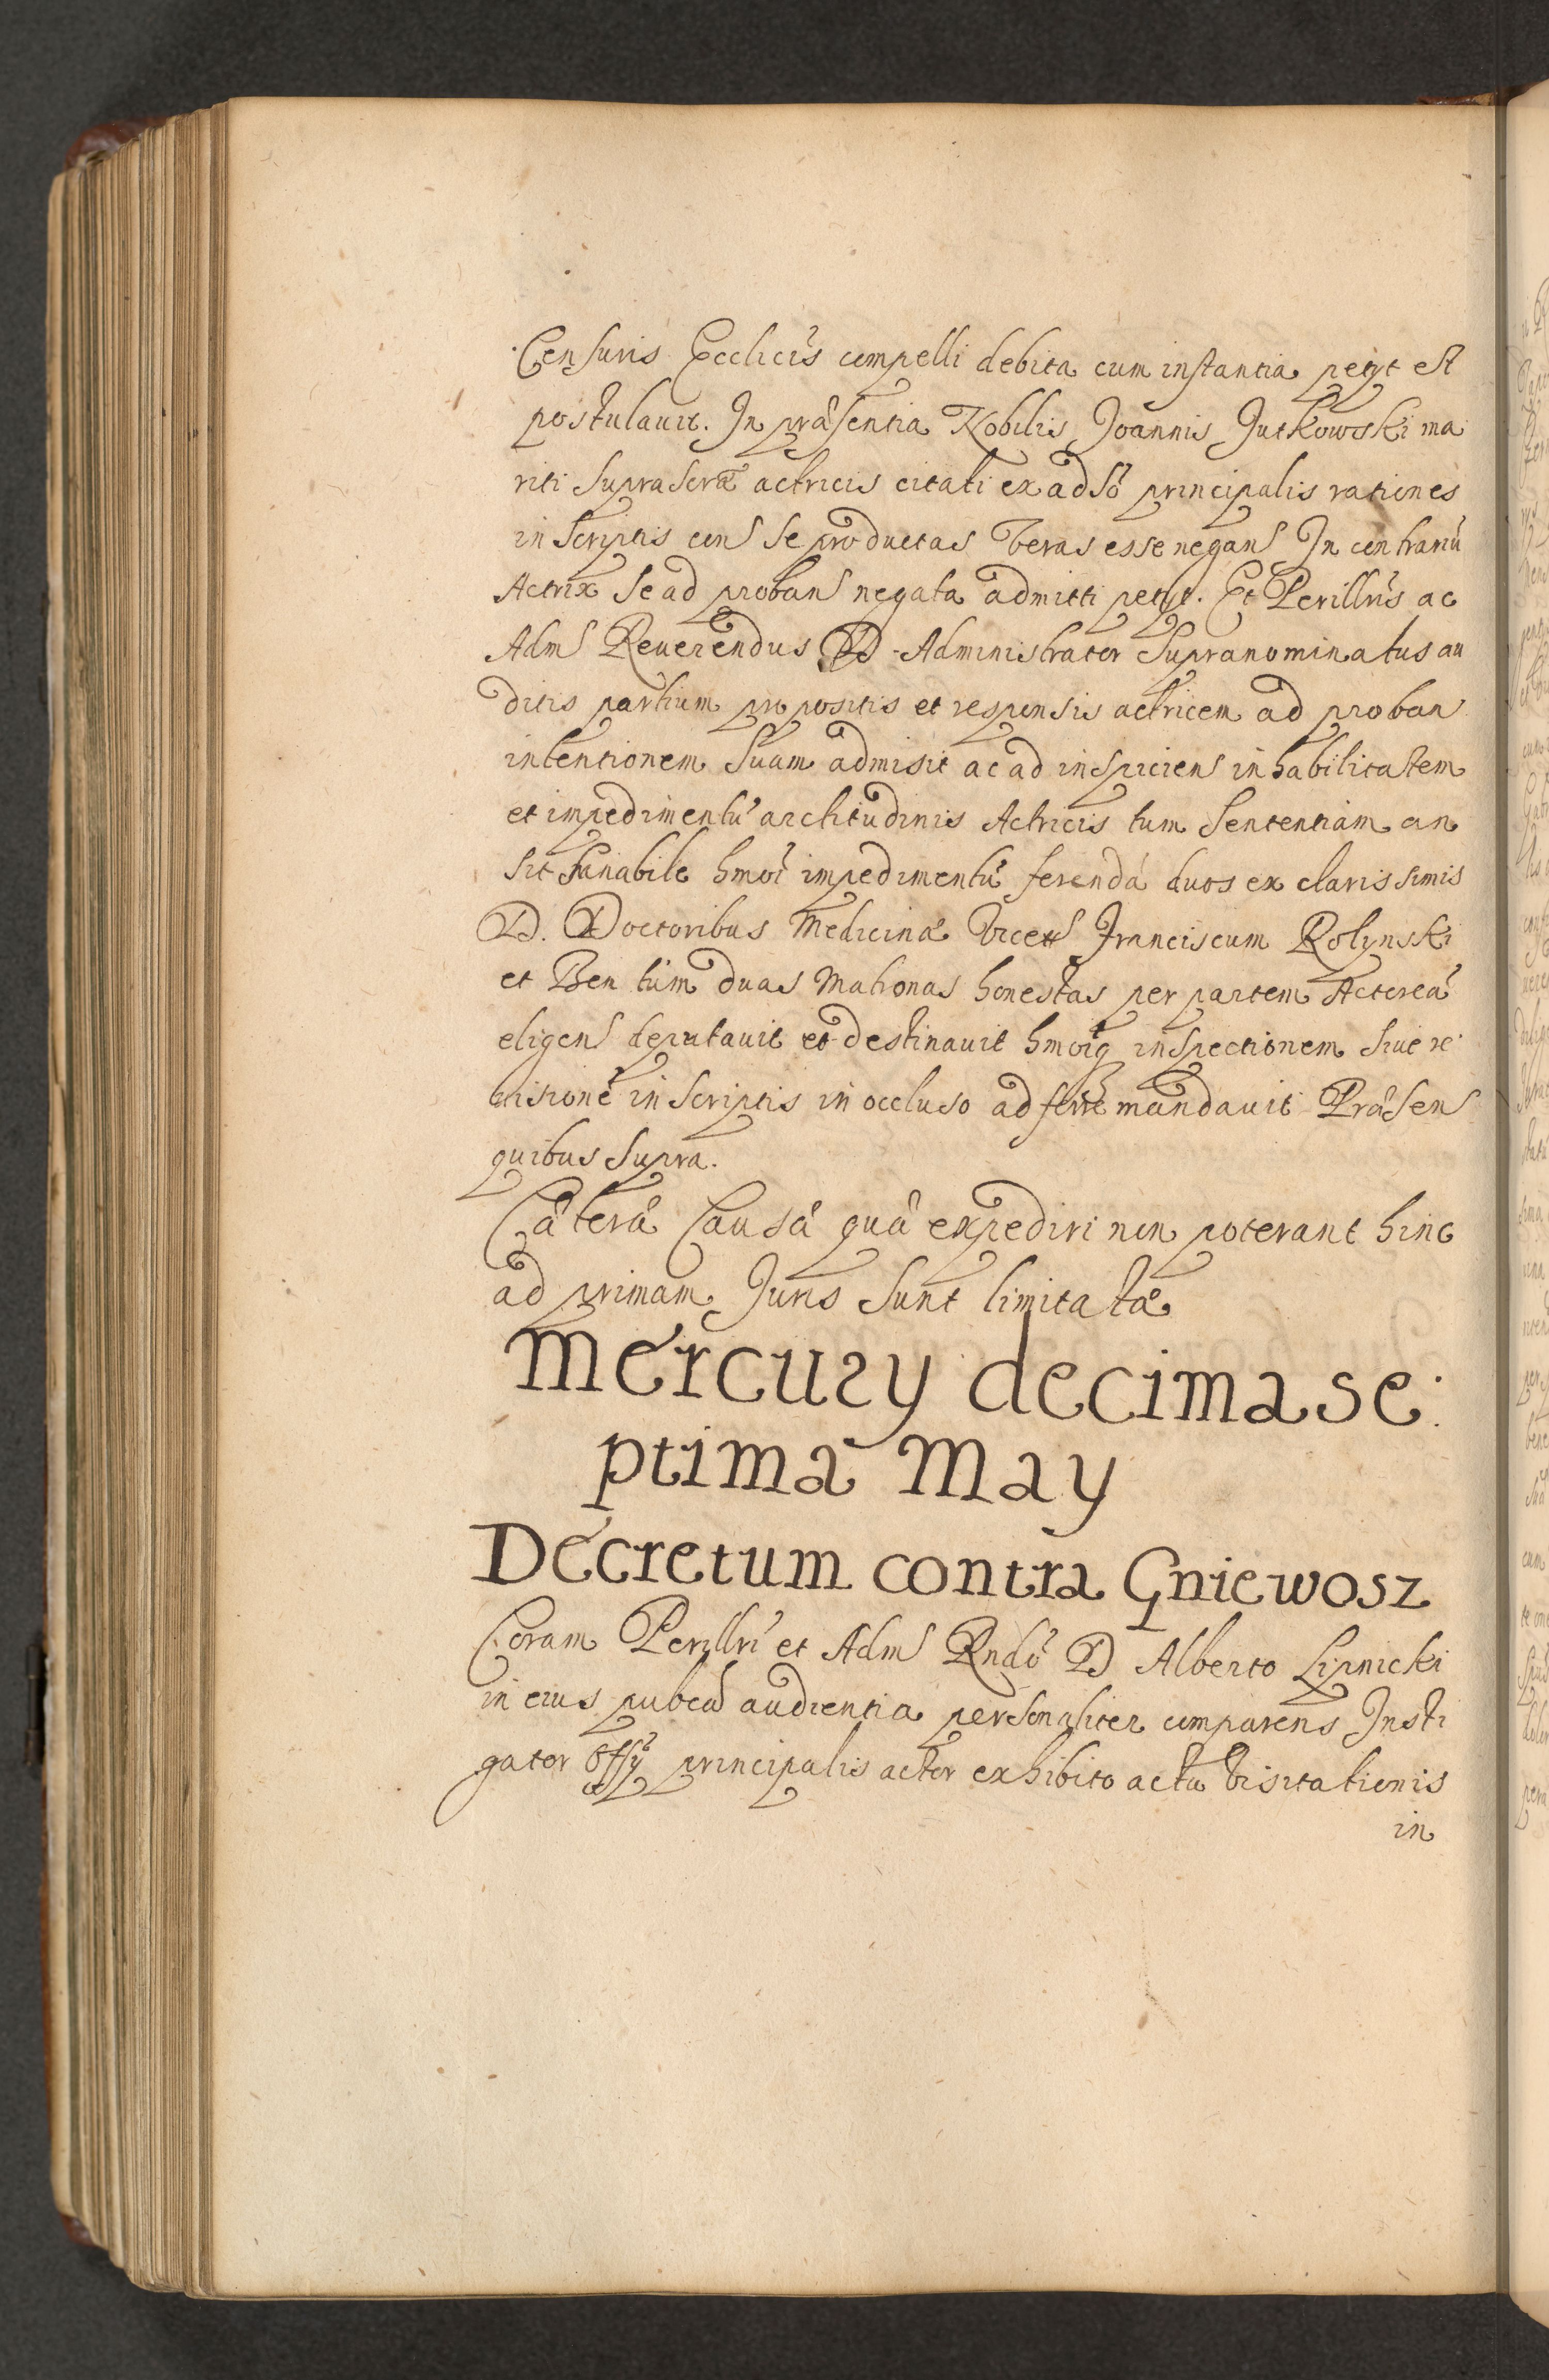 Censuris Ecclicis compelli debita cum instantia petyt et
postulauit. In præsentia Nobilis Joannis Jutkowski ma
riti suprascræ actricis citati ex adso principalis rationes
in scriptis con se productas veras esse negans In contrariũ
Actrix se ad proban negata admitti petyt. Et Perillris ac
Adm Reuerendus D Administrator Supranominatus au
ditis partium propositis et responsis actricem ad proban
intentionem suam admisit ac ad inspicien inhabilitatem
et impedimentũ arctitudinis Actricis tum sententiam an
sit sanabile hmoi impedimentũ ferendã duos ex clarissimis
D. Doctoribus Medicinæ Franciscum Rolynski
et Ben tum duas Matronas honestas per partem Actoreã
eligen deputauit et destinauit hmoiq inspectionem siue re
uisionẽ in scriptis in occluso ad ferre mandauit Præsen
quibus supra.
Cæteræ Causæ quæ expediri non poterant hinc
ad primam Juris sunt limitatæ
Mercury decima se:
ptima May
Decretum contra Gniewosz
Coram Perillri et Adm Rndo D Alberto Lipnicki
in eius pubca audientia personaliter comparens Insti
gator Offy principalis actor exhibito actu visitationis
in